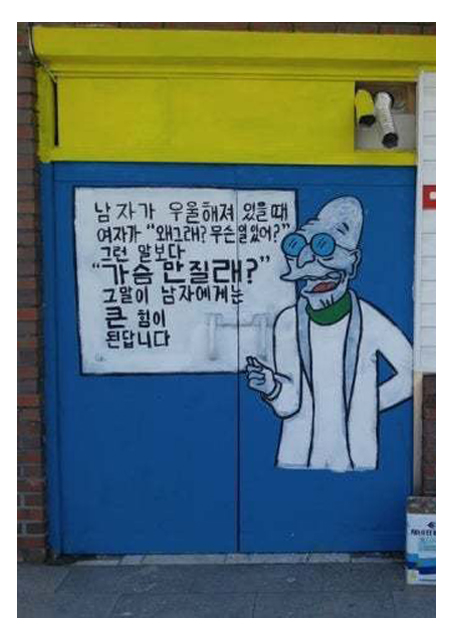 남자가 우울해져 있을때
여자가 "왜그래? 무슨일있어?"
그런 말보다
"가슴 만질래?"
그말이 남자에게는
큰 힘이
된답니다